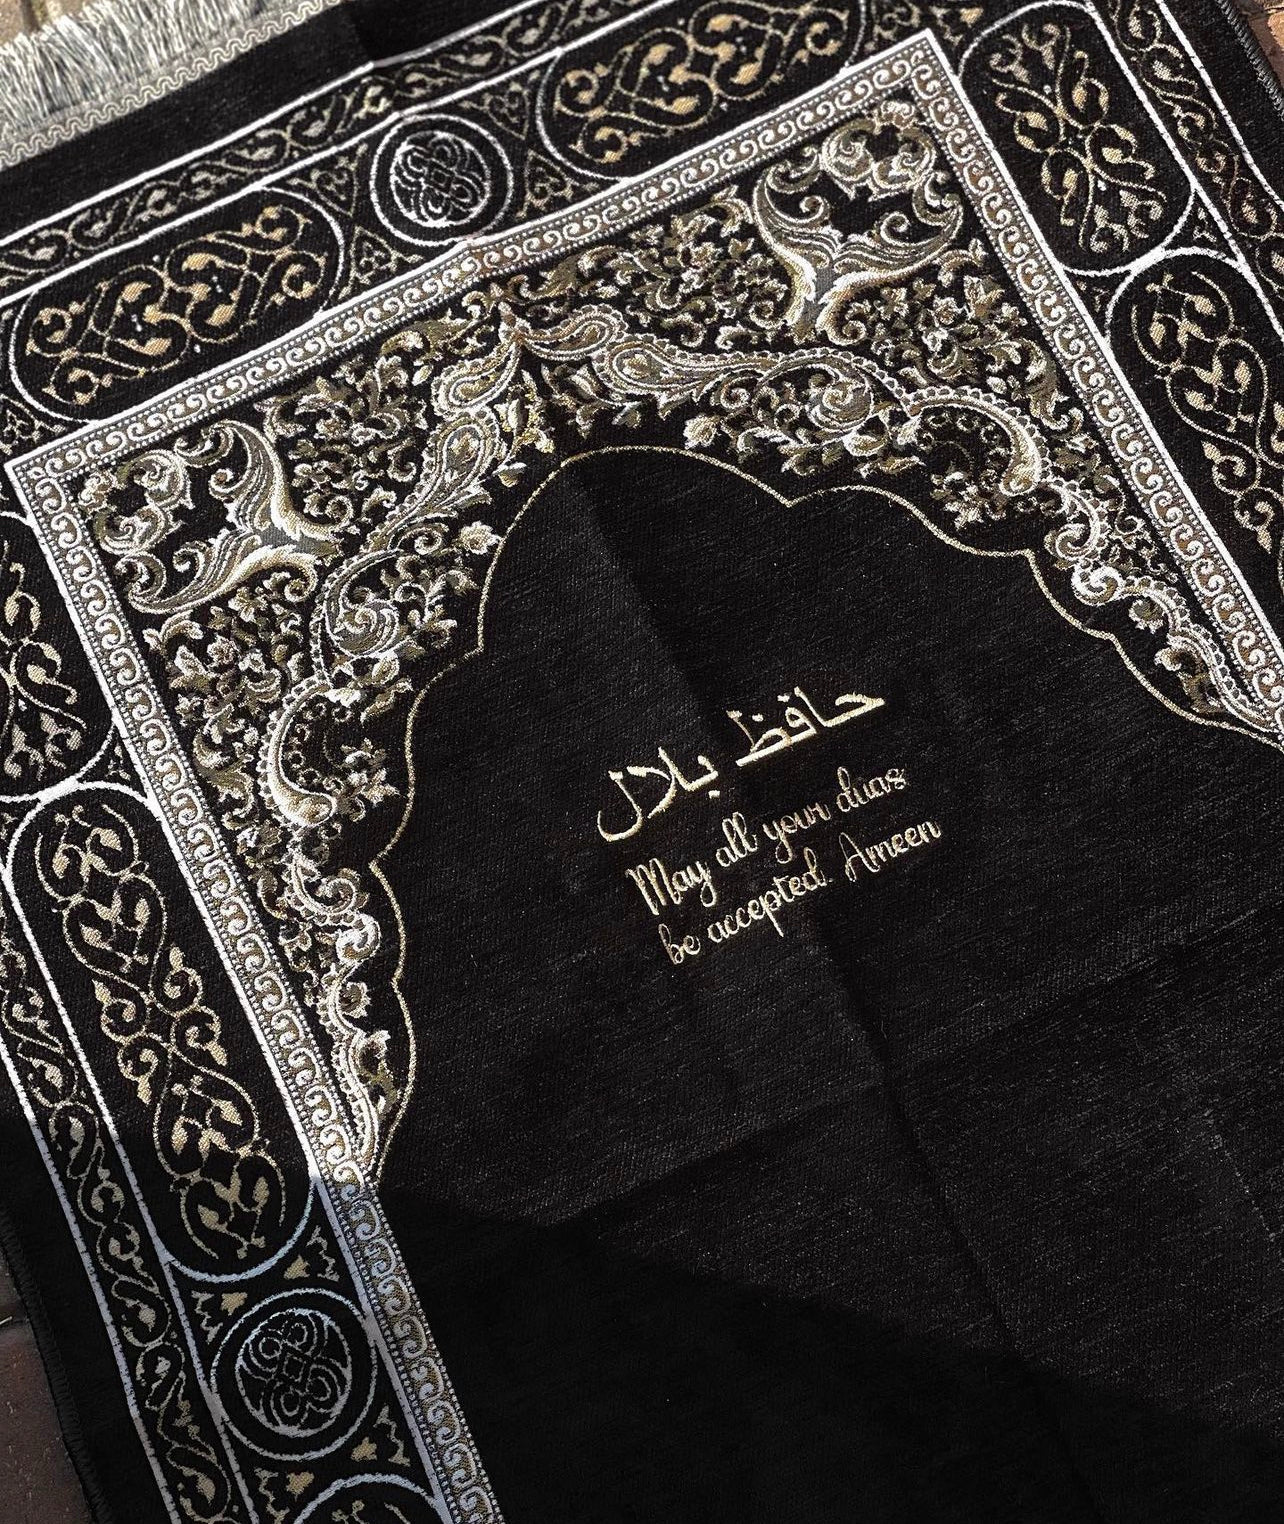 حافظ بلال
May all your duas
be accepted. Ameen